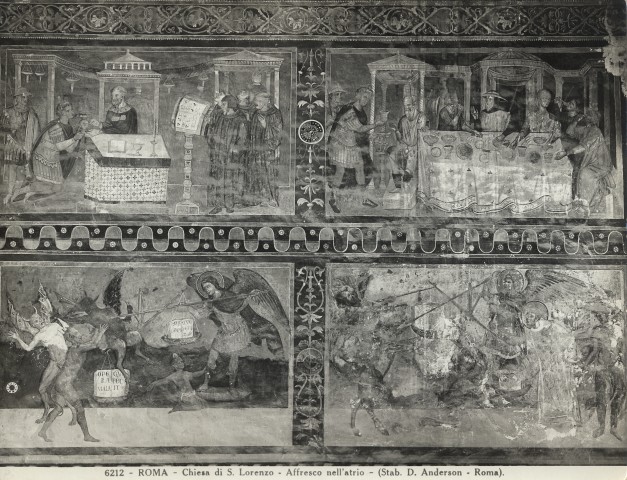 6212 - ROMA - Chiesa di S. Lorenzo - Affresco nell'atrio - (Stab. D. Anderson - Roma).